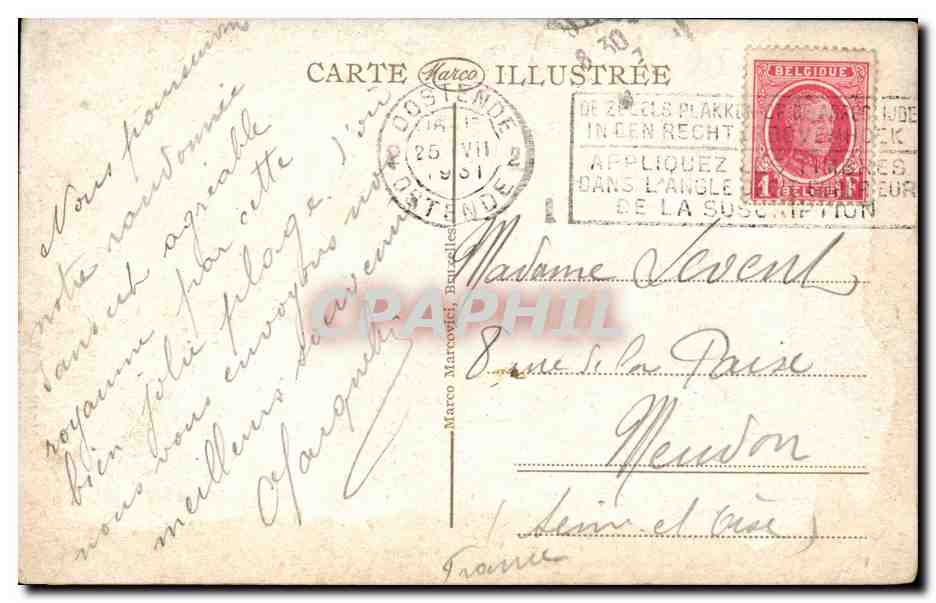 CARTE Marco ILLUSTRÉE
OOSTENDE
25 VII
1931
2
OSTENDE
8 30
DE ZEGELS PLAKKEN
IN DEN RECHT
APPLIQUEZ
DANS L'ANGLE
DE LA SUSCRIPTION
BELGIQUE
1 BELGIË Fr
Vous poursuivons
notre randonnée
dans cet agréable
royaume par cette
bien jolie plage d'où
nous vous envoyons nos
meilleurs souvenirs
Marco Marcovici, Bruxelles
CPAPHIL
Madame Levent
8 rue de la Paise
Meudon
(Seine et Oise)
France